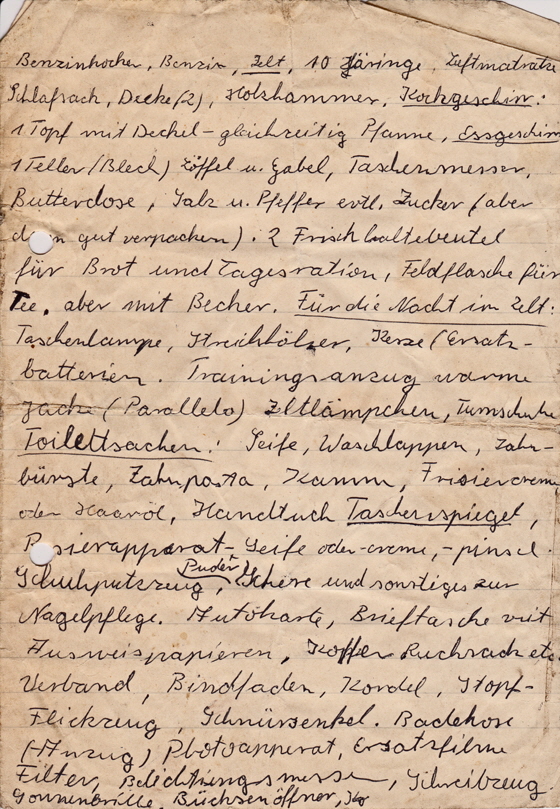 Benzinkocher, Benzin, Zelt, 10 Häringe, Luftmatratze
Schlafsack, Decke (2), Holzhammer, Kochgeschirr:
1 Topf mit Deckel - gleichzeitig Pfanne, Essgeschirr
1 Teller (Blech) Löffel u. Gabel, Taschenmesser,
Butterdose, Salz u. Pfeffer evtl. Zucker (aber
gut verpacken). 2 Frischhaltebeutel
für Brot und Tagesration, Feldflasche für
Tee, aber mit Becher. Für die Nacht im Zelt:
Taschenlampe, Streichhölzer, Kerze (Ersatz-
batterien. Trainingsanzug warme
Jacke (Parallelo) Zeltlämpchen, Turnschuhe
Toilettsachen: Seife, Waschlappen, Zahn-
bürste, Zahnpasta, Kamm, Frisiercreme
oder Haaröl, Handtuch Taschenspiegel,
Rasierapparat - Seife oder -creme, -pinsel
Schuhputzzeug, Puder, Schere und sonstiges zur
Nagelpflege. Autokarte, Brieftasche mit
Ausweispapieren, Koffer Ruchsack etc
Verband, Bindfaden, Kordel, Stopf-
Flickzeug, Schnürsenkel. Badehose
(Anzug) Photoapparat, Ersatzfilme
Filter, Belichtungsmesser, Schreibzeug
Sonnenbrille, Büchsenöffner,